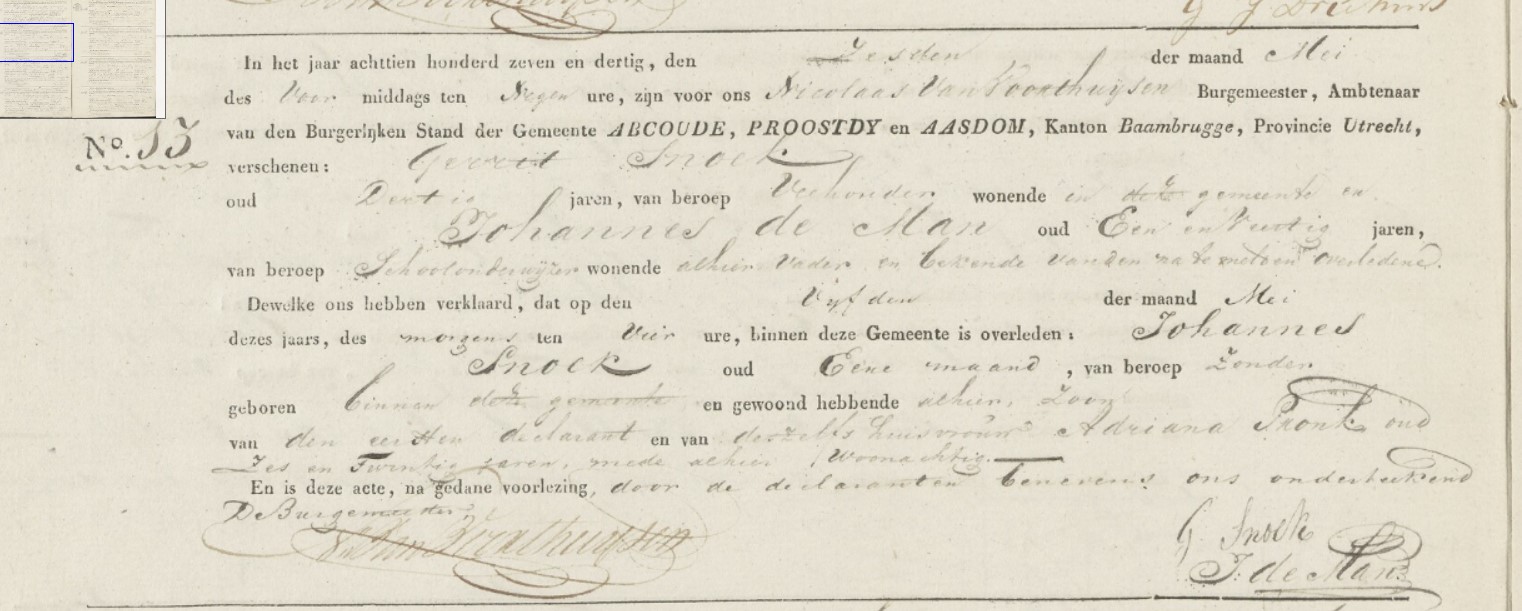 G J Driehuis
In het jaar achttien honderd zeven en dertig, den Zesden der maand Mei
des Voor middags ten Negen ure, zijn voor ons Nicolaas Van Voorthuijsen Burgemeester, Ambtenaar
van den Burgerlijken Stand der Gemeente ABCOUDE, PROOSTDY en AASDOM, Kanton Baambrugge, Provincie Utrecht,
No. 53
verschenen: Gerrit Snoek
oud Dertig jaren, van beroep Veehouder wonende in deze gemeente en
Johannes de Man oud Een en Veertig jaren,
van beroep Schoolonderwijzer wonende alhier Vader en bekende van den na te melden overledene.
Dewelke ons hebben verklaard, dat op den Vijfden der maand Mei
dezes jaars, des morgens ten Vier ure, binnen deze Gemeente is overleden: Johannes
Snoek oud Eene maand, van beroep Zonder
geboren binnen deze gemeente en gewoond hebbende alhier, Zoon
van den eersten declarant en van deszelfs huisvrouw Adriana Pronk oud
Zes en Twintig jaren, mede alhier Woonachtig.
En is deze acte, na gedane voorlezing, door de declaranten benevens ons onderteekend
De Burgemeester,
Van Voorthuijsen
G. Snoek
J. de Man